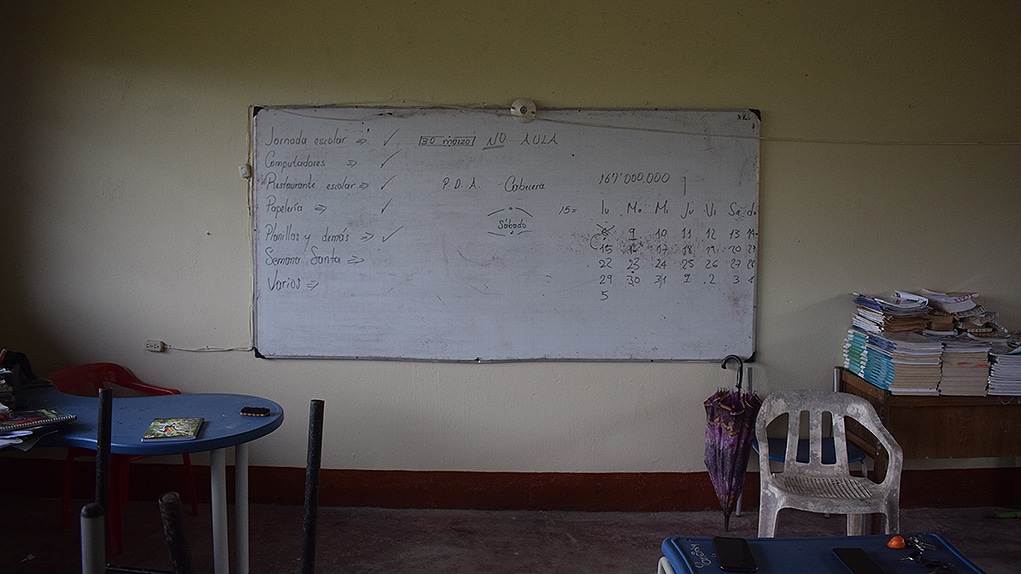 Jornada escolar ⇒ ✓
Computadores ⇒ ✓
Restaurante escolar ⇒ ✓
Papelería ⇒ ✓
Planillas y demás ⇒ ✓
Semana Santa ⇒
Varios ⇒
30 marzo NO AULA
P.D.A. Cabrera
Sábado
167'000.000
15= lu Ma Mi Ju Vi Sa do
8 9 10 11 12 13 14
15 16 17 18 19 20 21
22 23 24 25 26 27 28
29 30 31 1 2 3 4
5